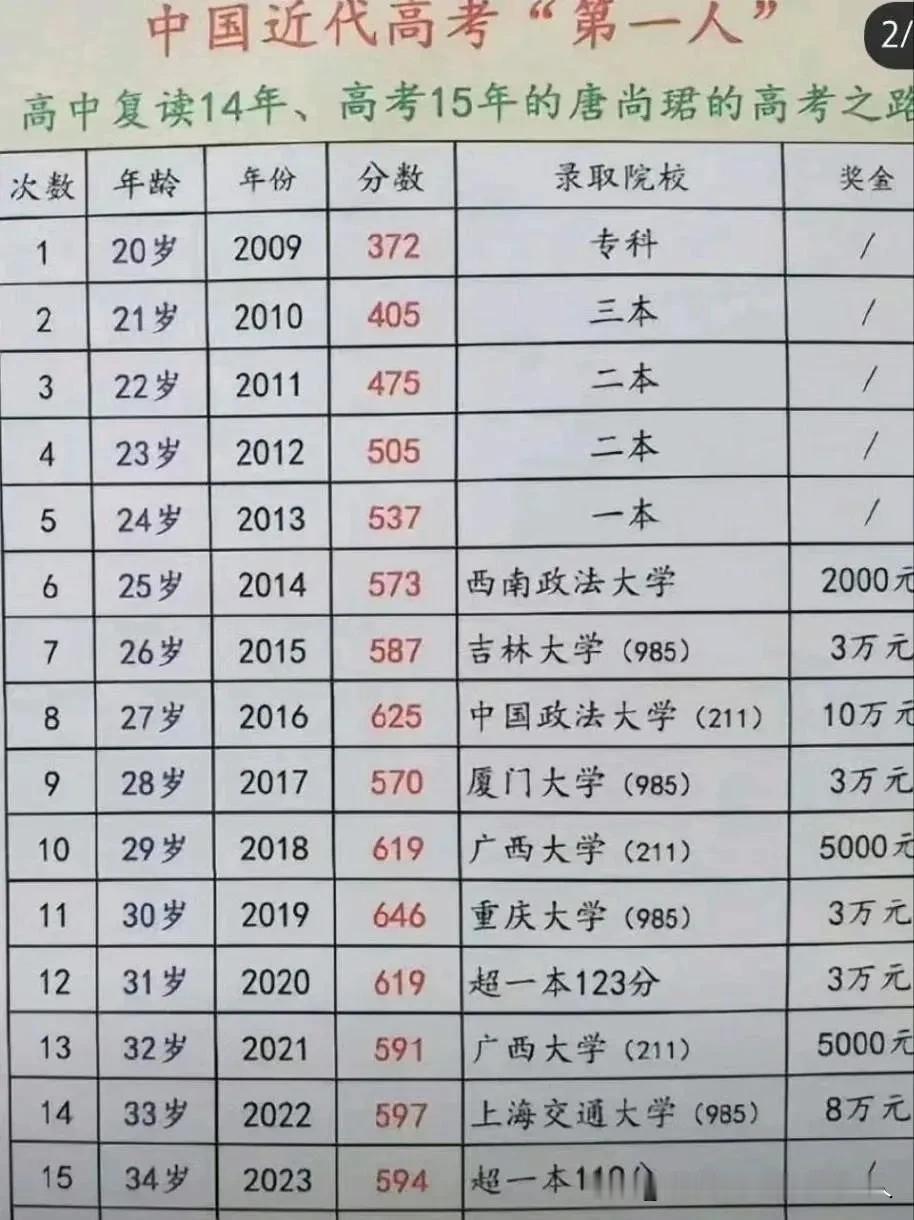 中国近代高考“第一人”
2/
高中复读14年、高考15年的唐尚珺的高考之路
次数 年龄 年份 分数 录取院校 奖金
1 20岁 2009 372 专科 /
2 21岁 2010 405 三本 /
3 22岁 2011 475 二本 /
4 23岁 2012 505 二本 /
5 24岁 2013 537 一本 /
6 25岁 2014 573 西南政法大学 2000元
7 26岁 2015 587 吉林大学（985） 3万元
8 27岁 2016 625 中国政法大学（211） 10万元
9 28岁 2017 570 厦门大学（985） 3万元
10 29岁 2018 619 广西大学（211） 5000元
11 30岁 2019 646 重庆大学（985） 3万元
12 31岁 2020 619 超一本123分 3万元
13 32岁 2021 591 广西大学（211） 5000元
14 33岁 2022 597 上海交通大学（985） 8万元
15 34岁 2023 594 超一本110分 /